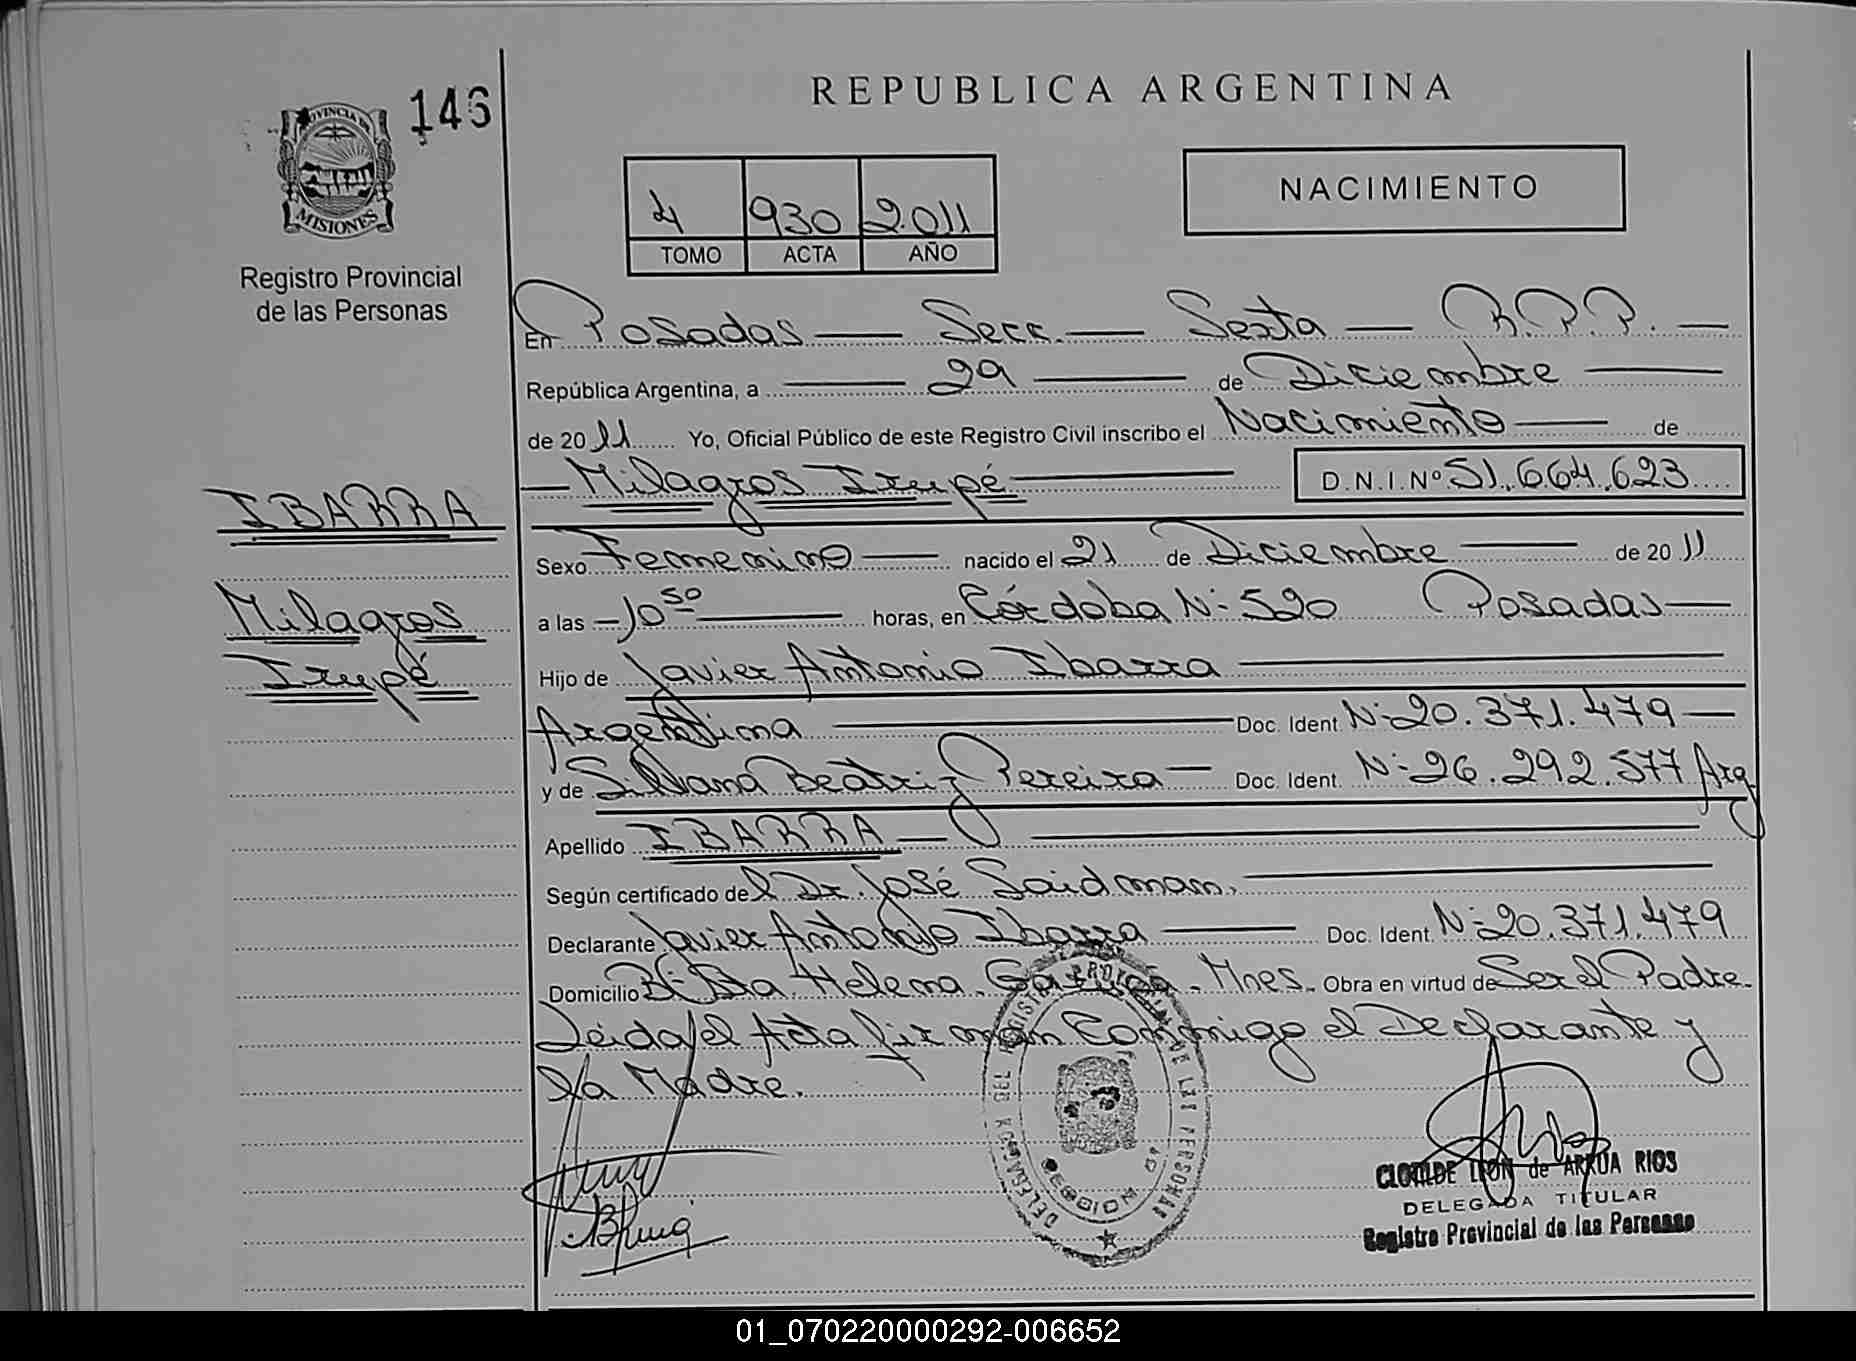 146
REPUBLICA ARGENTINA
PROVINCIA DE
MISIONES
Registro Provincial
de las Personas
NACIMIENTO
4 930 2.011
TOMO ACTA AÑO
En Posadas — Secc. — Sexta — R.P.P. —
República Argentina, a — 29 — de Diciembre —
de 2011 Yo, Oficial Público de este Registro Civil inscribo el Nacimiento — de
— Milagros Irupé — D.N.I. Nº 51.664.623
IBARRA
Milagros
Irupé
Sexo Femenino — nacido el 21 de Diciembre — de 2011
a las — 10 50 — horas, en Córdoba Nº 520 Posadas —
Hijo de Javier Antonio Ibarra —
Argentina — Doc. Ident. Nº 20.371.479 —
y de Silvana Beatriz Pereira — Doc. Ident. Nº 26.292.577 Arg
Apellido IBARRA —
Según certificado del Dr. José Saidman. —
Declarante Javier Antonio Ibarra — Doc. Ident. Nº 20.371.479
Domicilio Bº Sta Helena. Garupá. Mnes. Obra en virtud de Ser el Padre.
Leida el Acta firman Conmigo el Declarante y
la Madre.
DELEGACION DEL REGISTRO PROVINCIAL DE LAS PERSONAS
POSADAS
CLOTILDE LEON de ARRUA RIOS
DELEGADA TITULAR
Registro Provincial de las Personas
01_070220000292-006652